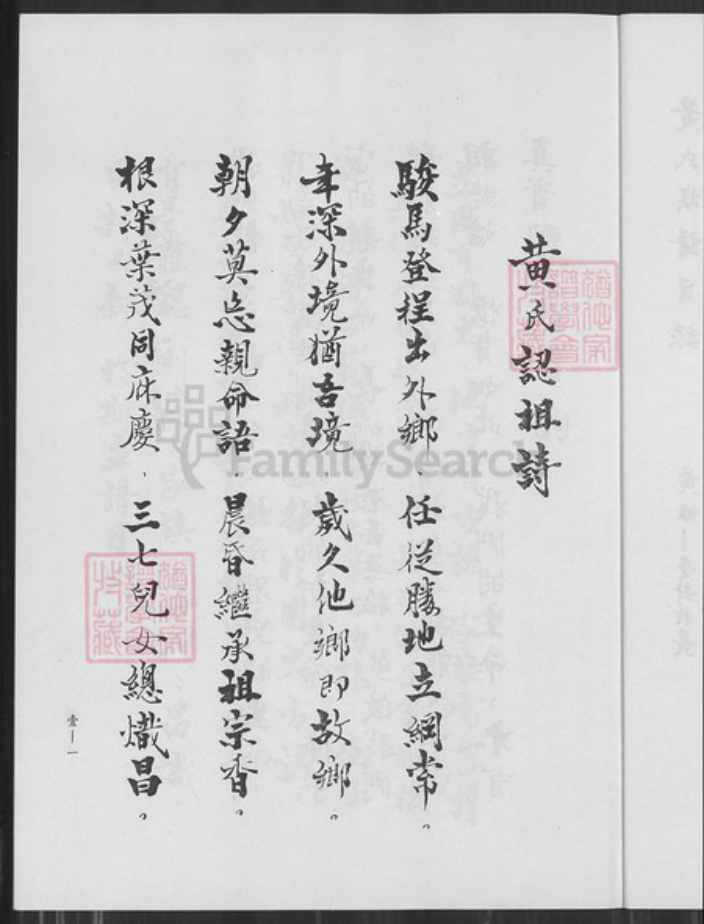 黃氏認祖詩
駿馬登程出外鄉 任從勝地立綱常。
年深外境猶吾境、歲久他鄉即故鄉。
朝夕莫忘親命語、晨昏繼承祖宗香。
根深葉茂同庥慶、三七兒女總熾昌。
壹—一
FamilySearch